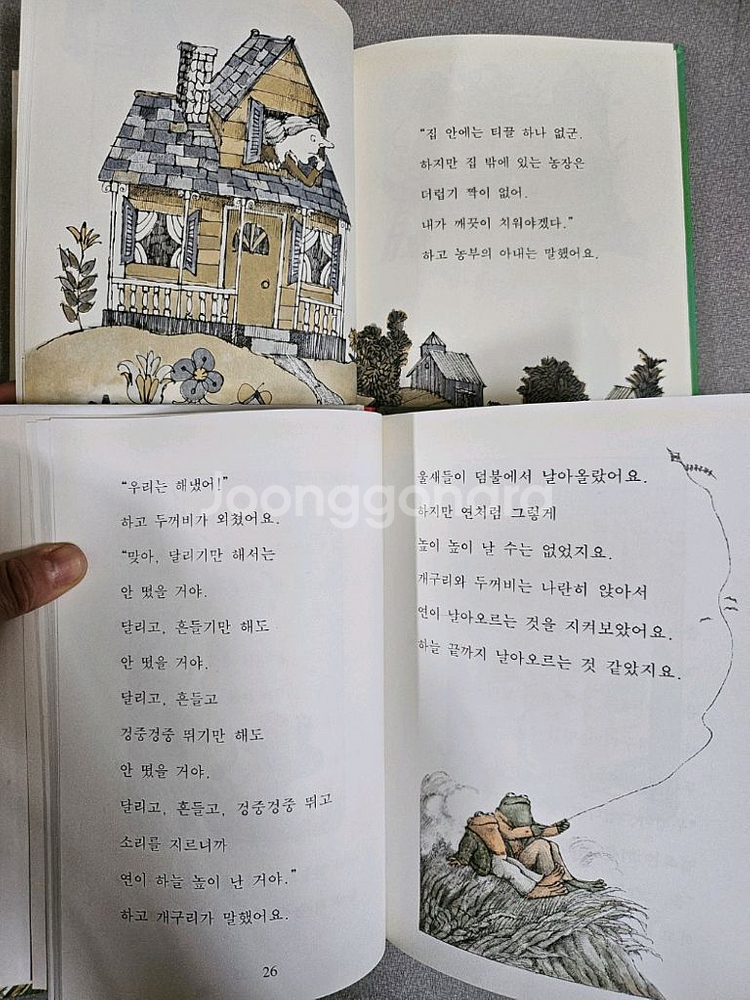 “집 안에는 티끌 하나 없군.
하지만 집 밖에 있는 농장은
더럽기 짝이 없어.
내가 깨끗이 치워야겠다.”
하고 농부의 아내는 말했어요.
“우리는 해냈어!”
하고 두꺼비가 외쳤어요.
“맞아, 달리기만 해서는
안 떴을 거야.
달리고, 흔들기만 해도
안 떴을 거야.
달리고, 흔들고
겅중겅중 뛰기만 해도
안 떴을 거야.
달리고, 흔들고, 겅중겅중 뛰고
소리를 지르니까
연이 하늘 높이 난 거야.”
하고 개구리가 말했어요.
26
울새들이 덤불에서 날아올랐어요.
하지만 연처럼 그렇게
높이 높이 날 수는 없었지요.
개구리와 두꺼비는 나란히 앉아서
연이 날아오르는 것을 지켜보았어요.
하늘 끝까지 날아오르는 것 같았지요.
Joonggonara